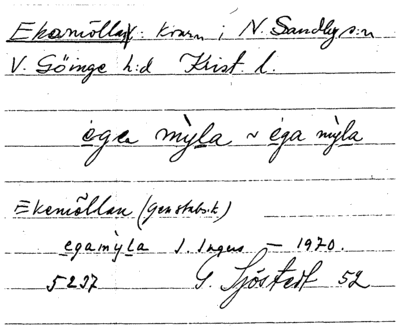 Ekamöllan: kvarn i N. Sandby s:n
V. Göinge h:d Krist. l.
ega mỳla ~ éga mỳla
Ekemöllan (genstabsk)
egamỳla J. Ingers — 1970.
5237 G. Sjöstedt 52